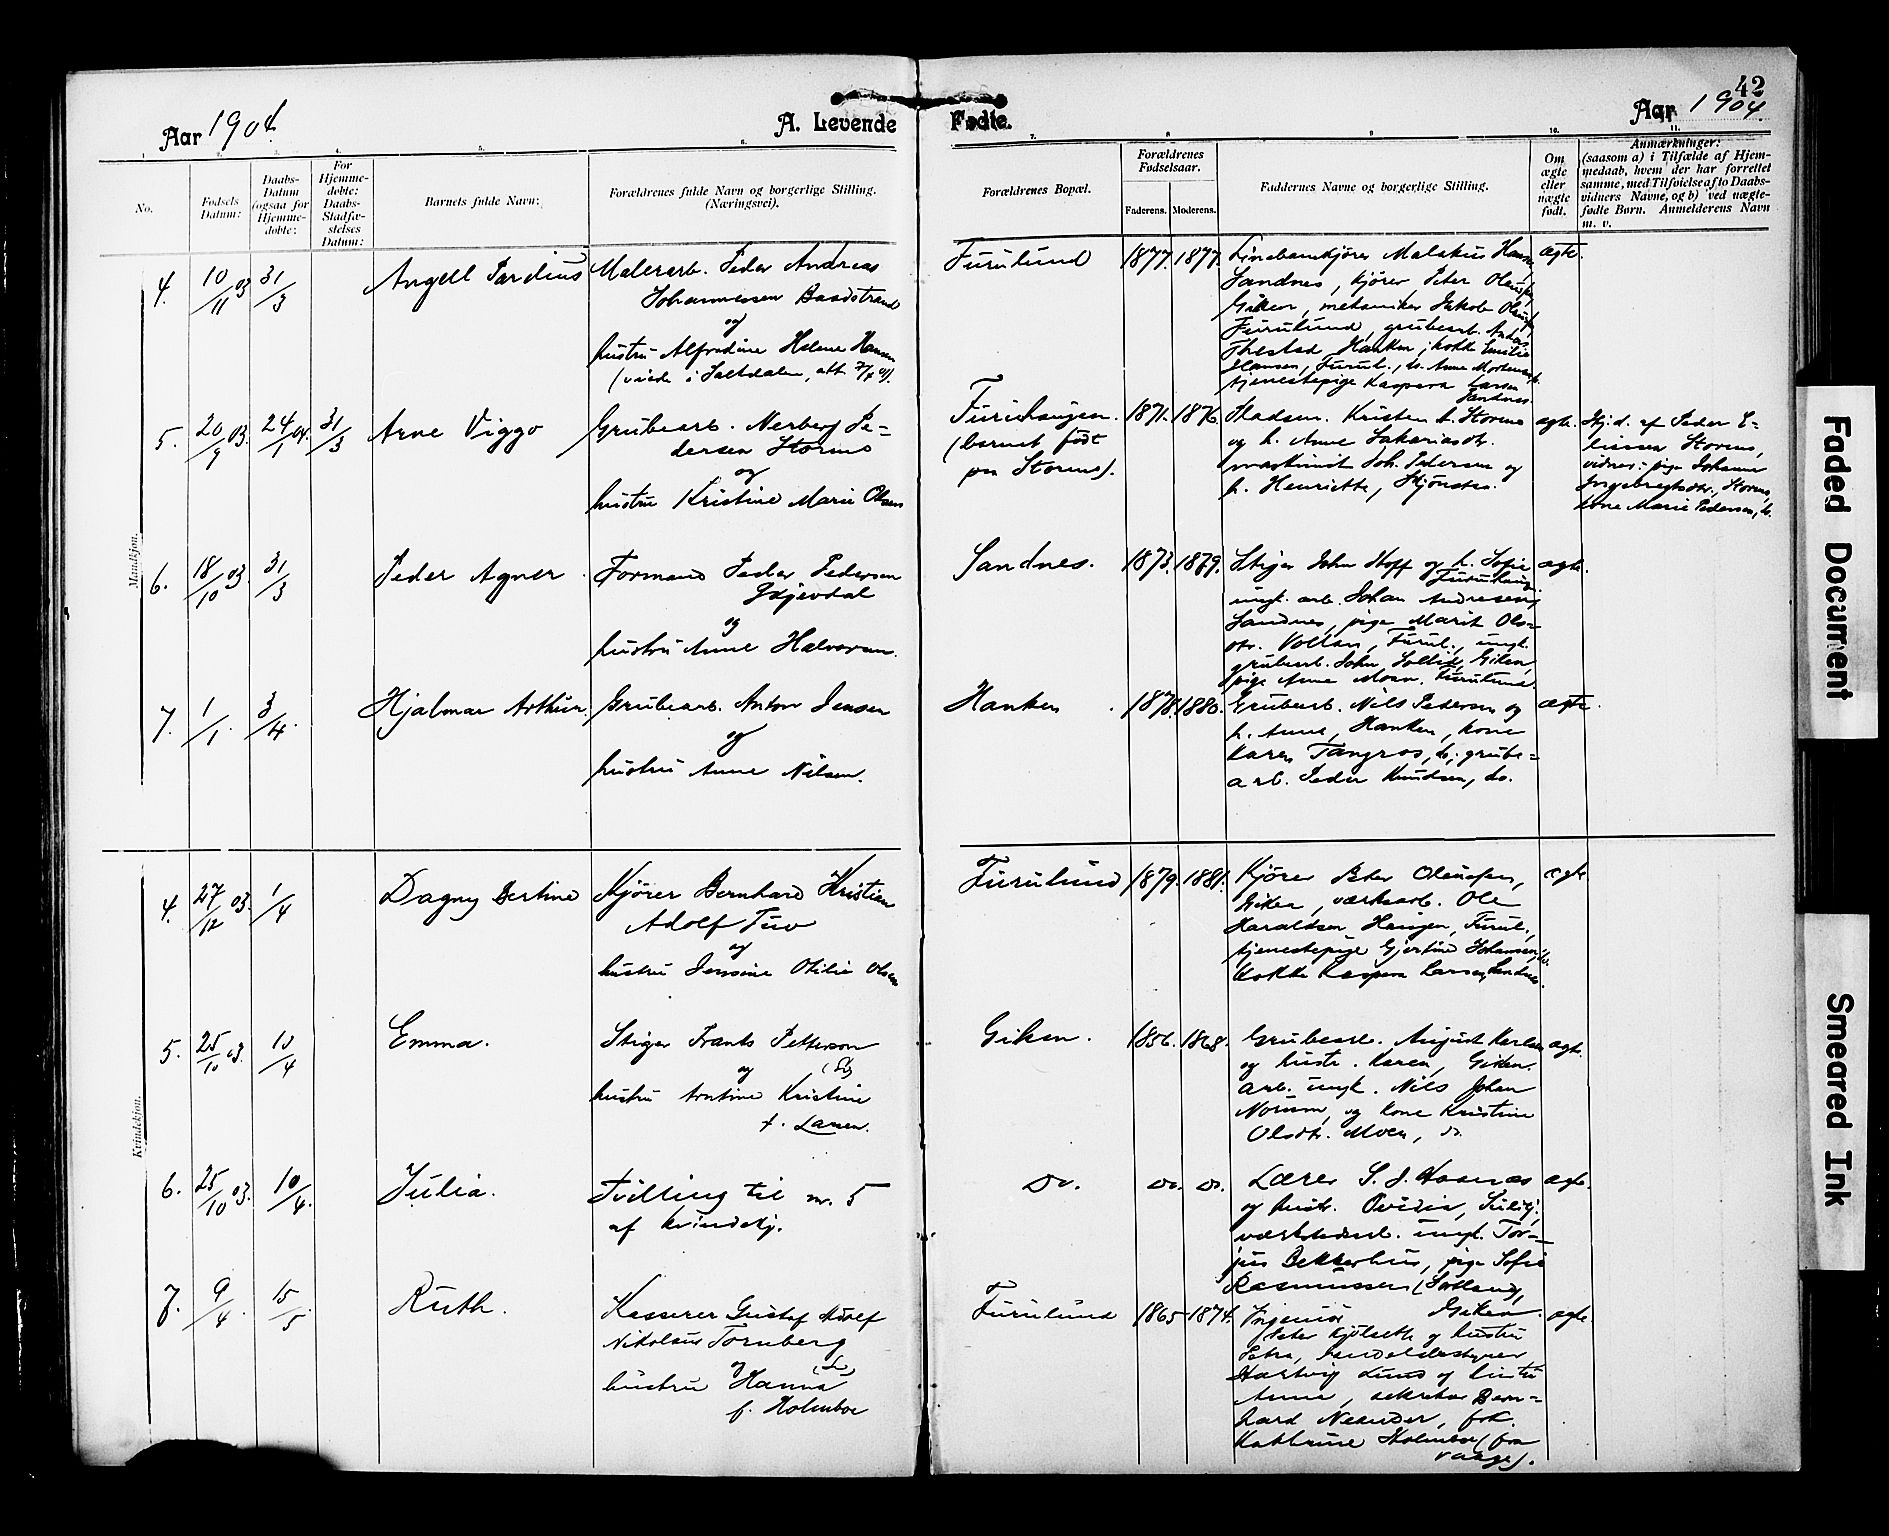 42
Aar 1904.
A. Levende Fødte.
Aar 1904.
1. 2. 3. 4. 5. 6. 7. 8. 9. 10. 11.
No.
Fødsels Datum:
Daabs-Datum (ogsaa for Hjemmedøbte:
For Hjemmedøbte: Daabs-Stadfæstelses Datum:
Barnets fulde Navn:
Forældrenes fulde Navn og borgerlige Stilling. (Næringsvei).
Forældrenes Bopæl.
Forældrenes Fødselsaar.
Faderens. Moderens.
Faddernes Navne og borgerlige Stilling.
Om ægte eller uægte født.
Anmærkninger:
(saasom a) i Tilfælde af Hjemmedaab, hvem der har forrettet samme, med Tilføielse af to Daabsvidners Navne, og b) ved uægtefødte Børn. Anmelderens Navn m. v.
Mandkjøn.
4. 10/11 03 31/3
Angell Pardius
Malerarb. Peder Andreas
Johannesen Baadstrand
og
hustru Alfredine Helene Hansen
(viede i Saltdalen,
Furulund 1877. 1877.
Linebanekjører Malakias Hansen,
Sandnes, kjører Peter
Giken, mekaniker Jakob
Furulund, grubearb. Anders
Hanken, kokke Emilie
Hansen, Furul., do. Anne Mortensen
tjenestepige Kaspara Larsen
Sandnes
ægte.
5. 20/9 03. 24/1 04. 31/3
Arne Viggo
Grubearb. Nerberg Pe-
dersen Stormo
og
hustru Kristine Marie Olsen
Furuhaugen.
(barnet født
paa Stormo).
1871. 1876.
Kristen P. Stormo
og h. Anne Sakariasdtr.
maskinist Joh. Pedersen og
h. Henriette, Hjønstes.
ægte.
Hj.d. af Peder E-
liassen Stormo,
vidner: pige Johanne
Ingebregtsdtr., Stormo,
kone Marie Pedersen, do.
6. 18/10 03. 31/3
Peder Agner
Formand Peder Pedersen
Gjevdal
og
hustru Anne Halvorsen.
Sandnes. 1873. 1879.
Stiger John Hoff og h. Sofie
Furuhaug.
ungk. arb. Johan Andresen,
Sandnes, pige Marit Ols-
dtr. Vollan, Furul., ungk.
grubearb. John Sollid, Giken,
pige Anne Moen, Furulund.
ægte.
7. 1/1. 3/4.
Hjalmar Arthur.
Grubearb. Anton Jensen
og
hustru Anne Nilsen.
Hanken. 1878. 1880.
Grubearb. Nils Pedersen og
h. Anne, Hanken, kone
Karen Tangros, do., grube-
arb. Peder Knudsen, do.
ægte.
Kvindekjøn.
4. 27/12 03. 1/4
Dagny Bertine
Kjører Bernhard Kristian
Adolf Tuv
og
hustru Jensine Otilie Olsen
Furulund 1879. 1881.
Kjører Peter Olausen,
Giken, værksarb. Ole
Haraldsen Haugen, Furul.,
tjenestepige Gjertine Johansen, do.
kokke Kaspara Larsen, Sandnes.
ægte.
5. 25/10 03. 10/4
Emma.
Stiger Frants Petterson
og
hustru Arntine Kristine
f. Larsen.
Giken. 1856. 1868.
Grubearb. August Karlsen
og hustr. Karen, Giken.
arb. ungk. Nils Johan
Norum, og kone Kristine
Olsdtr. Moen, do.
ægte.
6. 25/10 03. 10/4.
Julia.
Tvilling til nr. 5
af kvindekj.
Do. do. do.
Lærer S. J. Hosnæs
og hustr. Ovidia,
værkstedsarb. ungk. Tor-
jus Bekkerhus, pige Sofie
Rasmussen (Sotland),
Giken.
ægte.
7. 9/4 15/5.
Ruth.
Kasserer Gustaf Adolf
Nikolaus Tornberg
og
hustru Hanna
f. Holmboe
Furulund 1865 1874.
Ingeniør
Peter Kjølseth og hustru
Petra, handelsbestyrer
Hartvig Lund og hustru
Anna, sekretær Bern-
hard Neander, frk.
Kathrine Holmboe (fra
Vaage).
ægte.
Faded Document
Smeared Ink